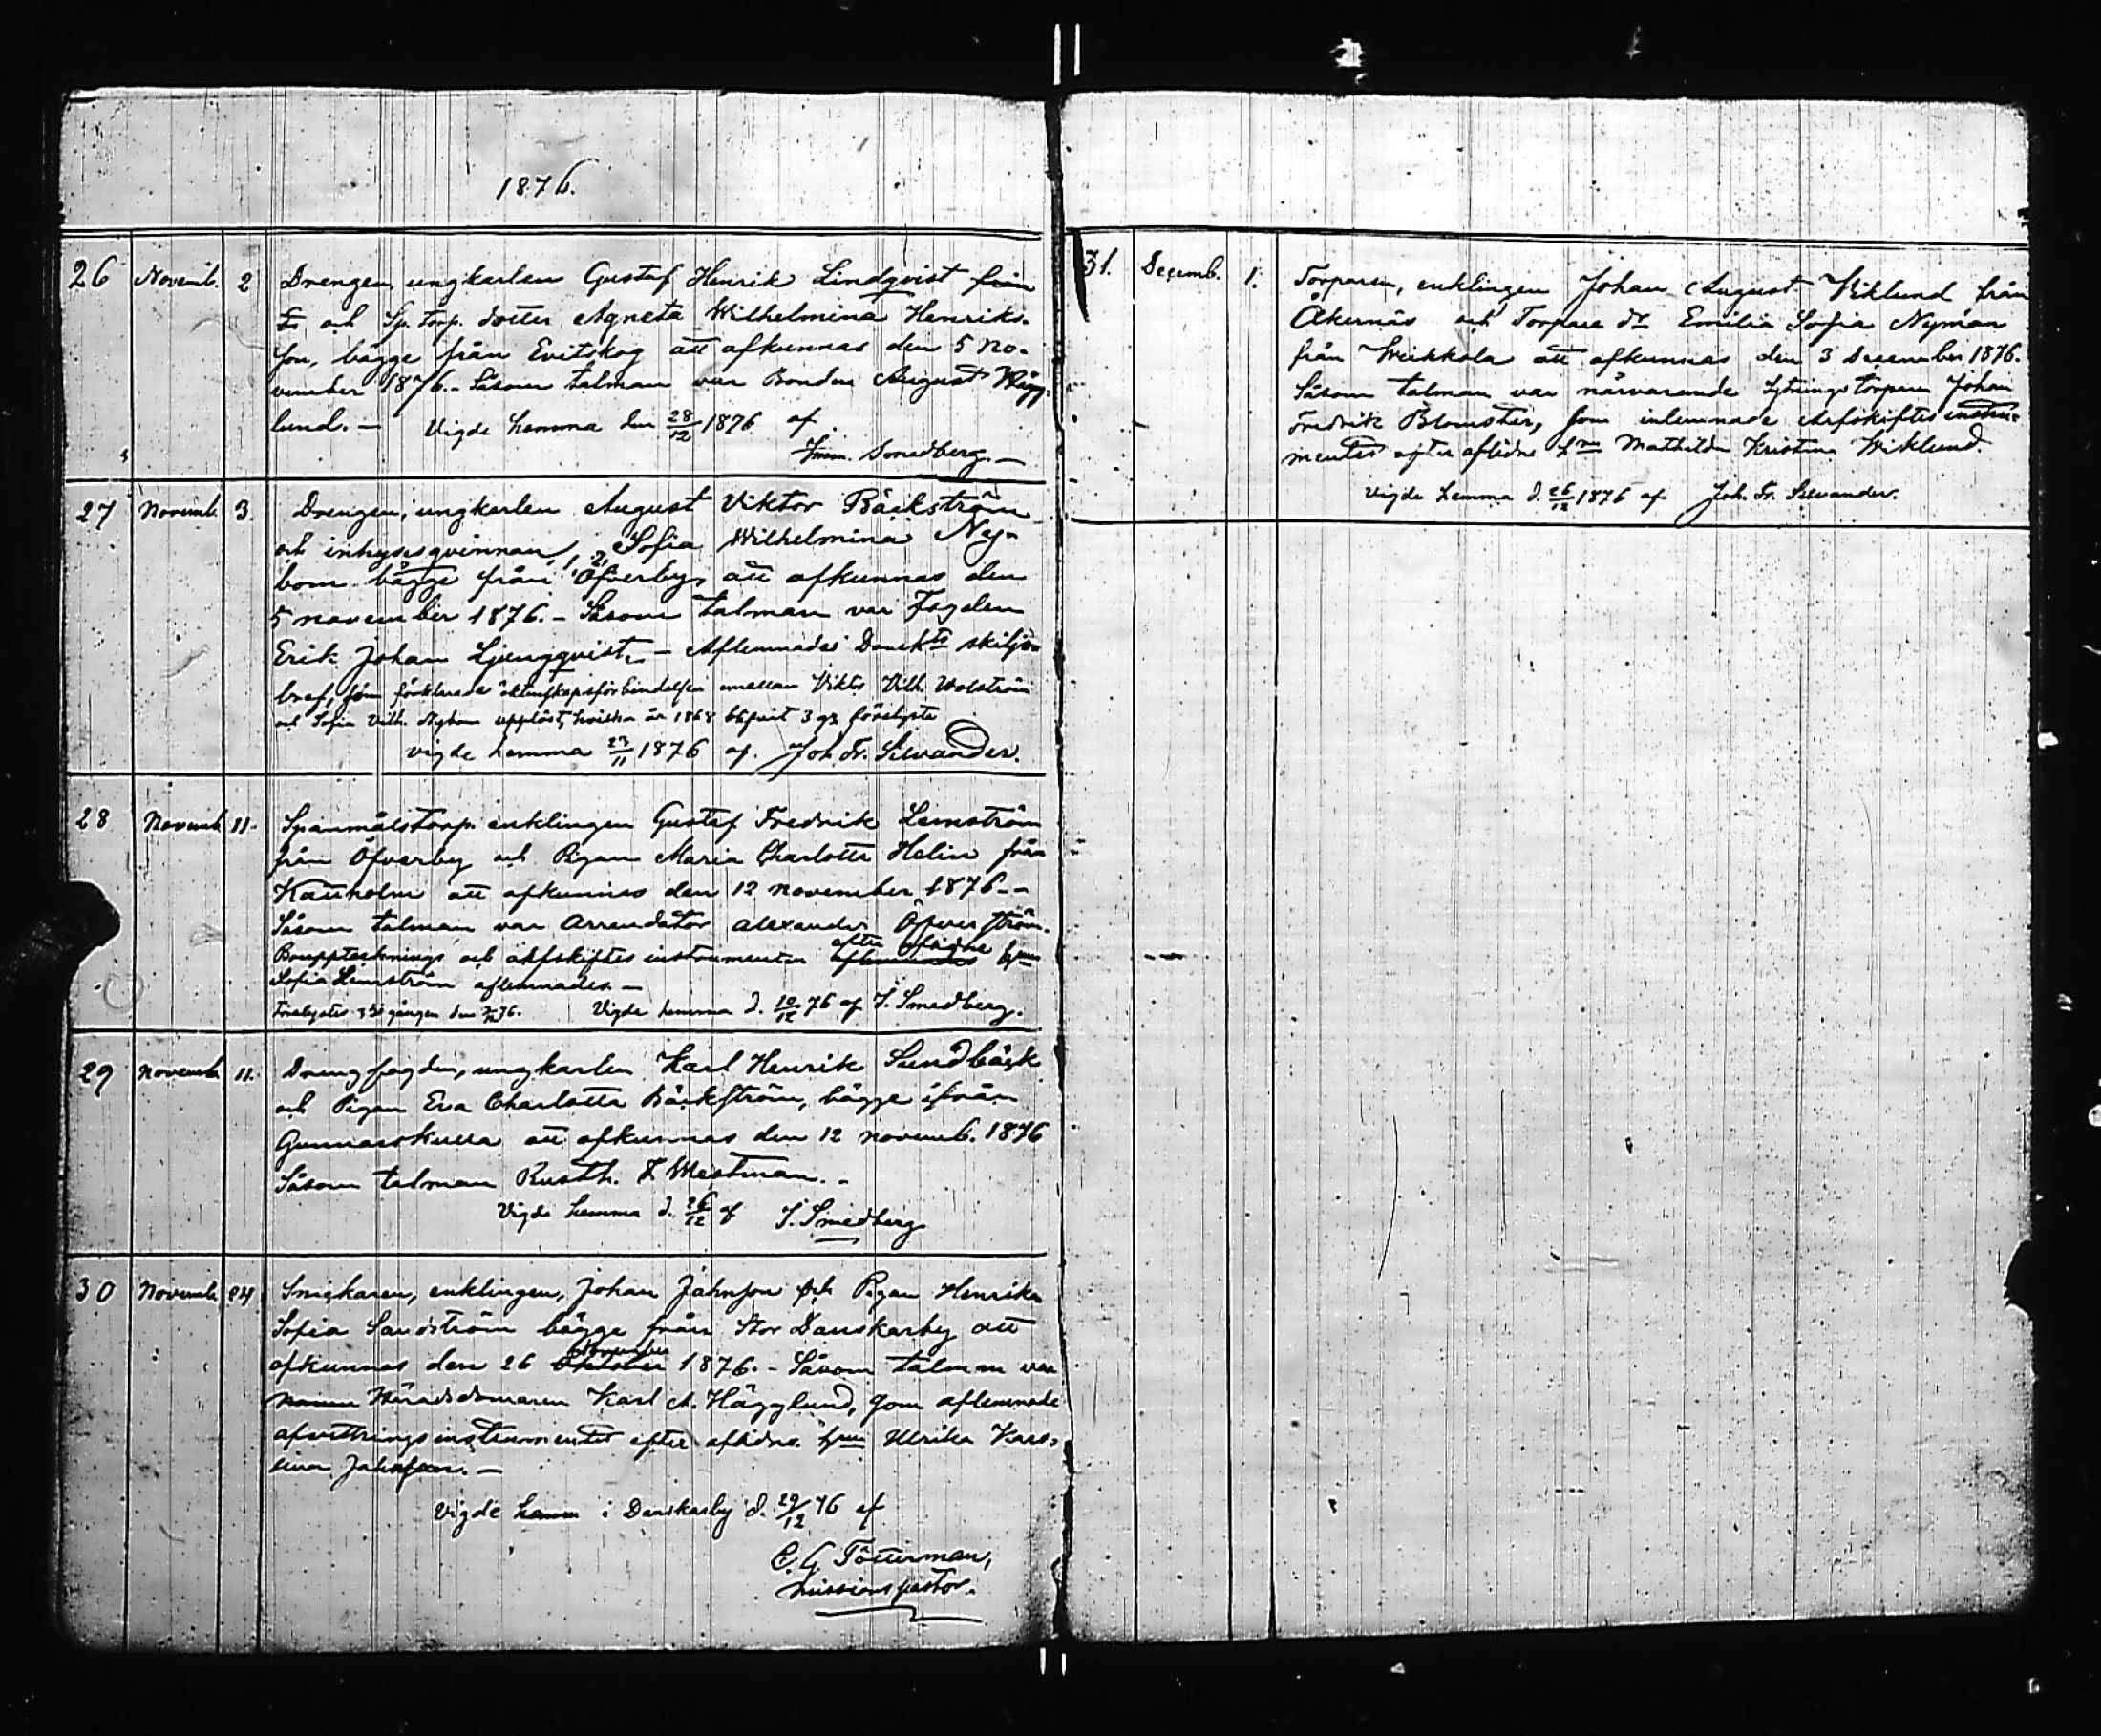 1876.
26 Novemb. 2 Drengen, ungkarlen Gustaf Henrik Lindqvist från
och Sp. torp. dotter Agneta Wilhelmina Henriks-
son, bägge från Evitskog att afkunnas den 5 No-
vember 1876. – Såsom talman var Bonden August Hägg-
lund. – Vigde hemma den 28/12 1876 af
Imm. Smedberg. –
27 Novemb. 3. Drengen, ungkarlen August Viktor Bäckström
och inhysesqvinnan, Sofia Wilhelmina Ny-
bom bägge från Öfverby, att afkunnas den
5 november 1876. – Såsom talman var Fogden
Erik Johan Ljungqvist. – Aflemnades Domk:ts skiljo-
bref, som förklarade äktenskapsförbindelsen emellan Viktor Vilh. Wolström
och Sofia Vilh. Nybom upplöst, hvilka år 1868 blifvit 3 gr förelyste
vigde hemma 23/11 1876 af. Joh. Fr. Silvander.
28 Novemb. 11. Spanmålstorp. enklingen Gustaf Fredrik Lemström
från Öfverby och Pigan Maria Charlotta Helin från
Kauholm att afkunnas den 12 november 1876. –
Såsom talman var Arrendator Alexander Öfverström.
efter aflidne
Boupptecknings och arfskiftes instrumenten aflemnades h:un
Sofia Lemström aflemnades. –
Förelystes 3:dje gången den 76. Vigde hemma d. 10/12 76 af I. Smedberg.
29 Novemb. 11. Drengfogden, ungkarlen Karl Henrik Sundbäck
och Pigan Eva Charlotta Bäckström, bägge ifrån
Gunnarskulla att afkunnas den 12 novemb. 1876
Såsom talman Rusth. F Westman. –
Vigde hemma d. 26/12 af I. Smedberg
30 Novemb. 24 Snickaren, enklingen, Johan Jahnson och Pigan Henrika
Sofia Sandström bägge från Stor Danskarby att
November
afkunnas den 26 Oktober 1876. – Såsom talman var
Häradsdomaren Karl A. Hägglund, som aflemnade
afvittringsinstrumentet efter aflidna h:un Ulrika Karo-
lina Jahnson. –
Vigde hemma i Danskarby d. 29/12 76 af
C. G Tötterman,
missionspastor.
31. Decemb. 1. Torparen, enklingen Johan August Viklund från
Åkernäs och Torpare d:r Emilia Sofia Nyman
från Weikkola att afkunnas den 3 December 1876.
Såsom talman var närvarande Torparen Johan
Fredrik Blomster, som inlemnade Arfskiftes instru-
mentet efter aflidne Mathilda Kristina Wiklund.
Vigde hemma d. 26/12 1876 af Joh. Fr. Silvander.